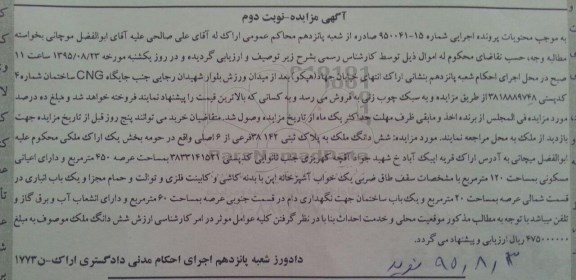 آگهی مزایده-نوبت دوم
به موجب محتویات پرونده اجرایی شماره ۱۵-۹۵۰۰۴۱ صادره از شعبه پانزدهم محاکم عمومی اراک له آقای علی صالحی علیه آقای ابوالفضل موچانی بخواسته
مطالبه وجه، حسب تقاضای محکوم له اموال ذیل توسط کارشناس رسمی بشرح زیر توصیف و ارزیابی گردیده و در روز یکشنبه مورخه ۱۳۹۵/۰۸/۲۳ ساعت ۱۱
صبح در محل اجرای احکام شعبه پانزدهم بنشانی اراک انتهای خیابان جهاد(هپکو) بعد از میدان ورزش بلوار شهیدان رجایی جنب جایگاه CNG ساختمان شماره ۴
کدپستی ۳۸۱۸۸۸۹۷۴۸ از طریق مزایده و به سبک چوب زنی به فروش می رسد و به کسانی که بالاترین قیمت را پیشنهاد نمایند فروخته خواهد شد و مبلغ ده درصد
مورد مزایده فی المجلس از برنده اخذ و مابقی ظرف مهلت حداکثر یک ماه از تاریخ مزایده وصول شد. متقاضیان خرید می توانند پنج روز قبل از تاریخ مزایده جهت
بازدید از ملک به محل مراجعه نمایند. مورد مزایده: شش دانگ ملک به پلاک ثبتی ۳۸۱۴۲ فرعی از ۶ اصلی واقع در حومه بخش یک اراک ملکی محکوم علیه
ابوالفضل میچانی به آدرس اراک قریه ایبک آباد خ شهید جواد آقچه کهریزی جنب نانوایی کدپستی ۳۸۳۳۱۴۱۵۲۱ بمساحت عرصه ۴۵۰ مترمربع و دارای اعیانی
مسکونی بمساحت ۱۲۰ مترمربع با مشخصات سقف طاق ضربی یک خواب آشپزخانه اپن با بدنه کاشی و کابینت فلزی و توالت و حمام مجزا و یک باب انباری در
قسمت شمالی عرصه بمساحت ۲۰ مترمربع و یک باب ساختمان جهت نگهداری دام در قسمت جنوبی عرصه بمساحت ۶۰ مترمربع و دارای انشعاب آب و برق گاز و
تلفن میباشد با توجه به مطالب مذکور موقعیت محلی و خدمت احداث بنا با در نظر گرفتن کلیه عوامل موثر در امر کارشناسی ارزش شش دانگ ملک موصوف به مبلغ
۴۷۵۰۰۰۰۰۰ ریال ارزیابی و پیشنهاد می گردد.
دادورز شعبه پانزدهم اجرای احکام مدنی دادگستری اراک-ن۱۷۷۳
۹۵،۸،۳